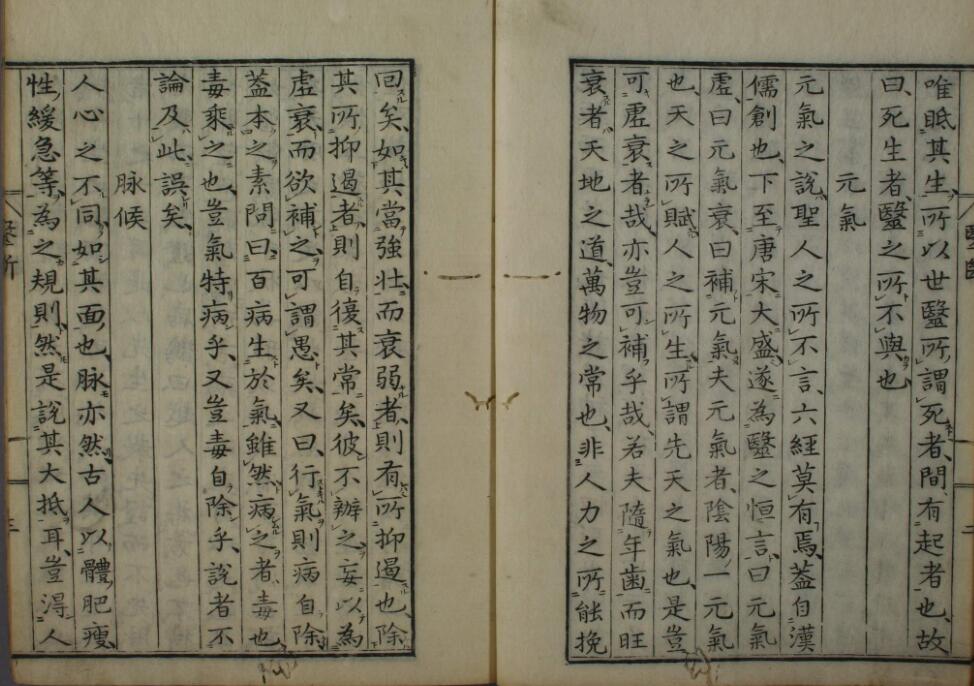 唯眡其生所以世毉所謂死者間有起者也故
曰死生者毉之所不與也
元氣
元氣之說聖人之所不言六經莫有焉蓋自漢
儒創也下至唐宋大盛遂為毉之恒言曰元氣
虛曰元氣衰曰補元氣夫元氣者陰陽一元氣
也天之所賦人之所生所謂先天之氣也是豈
可虛衰者哉亦豈可補乎哉若夫隨年齒而旺
衰者天地之道萬物之常也非人力之所能挽
回矣如其當強壯而衰弱者則有所抑遏也除
其所抑遏者則自復其常矣彼不辨之妄以為
虛衰而欲補之可謂愚矣又曰行氣則病自除
蓋本之素問曰百病生於氣雖然病之者毒也
毒乘之也豈氣特病乎又豈毒自除乎說者不
論及此誤矣
脉候
人心之不同如其面也脉亦然古人以體肥瘦
性緩急等為之規則然是說其大抵耳豈淂人